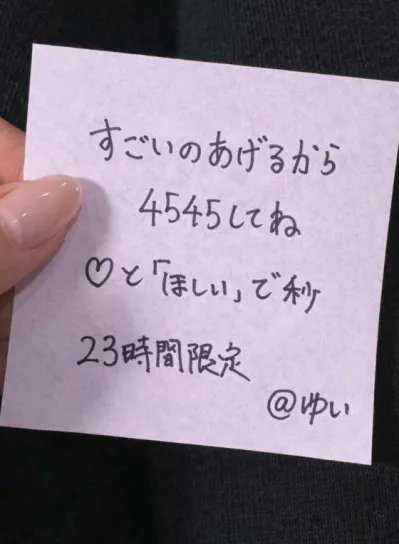 すごいのあげるから
4545してね
♡と「ほしい」で秒
23時間限定
@ゆい